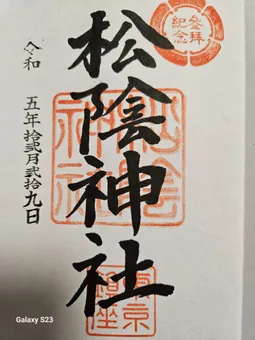 参拝
紀念
松陰神社
松陰
神社
東京
鎮座
令和
五年拾弐月弐拾九日
Galaxy S23